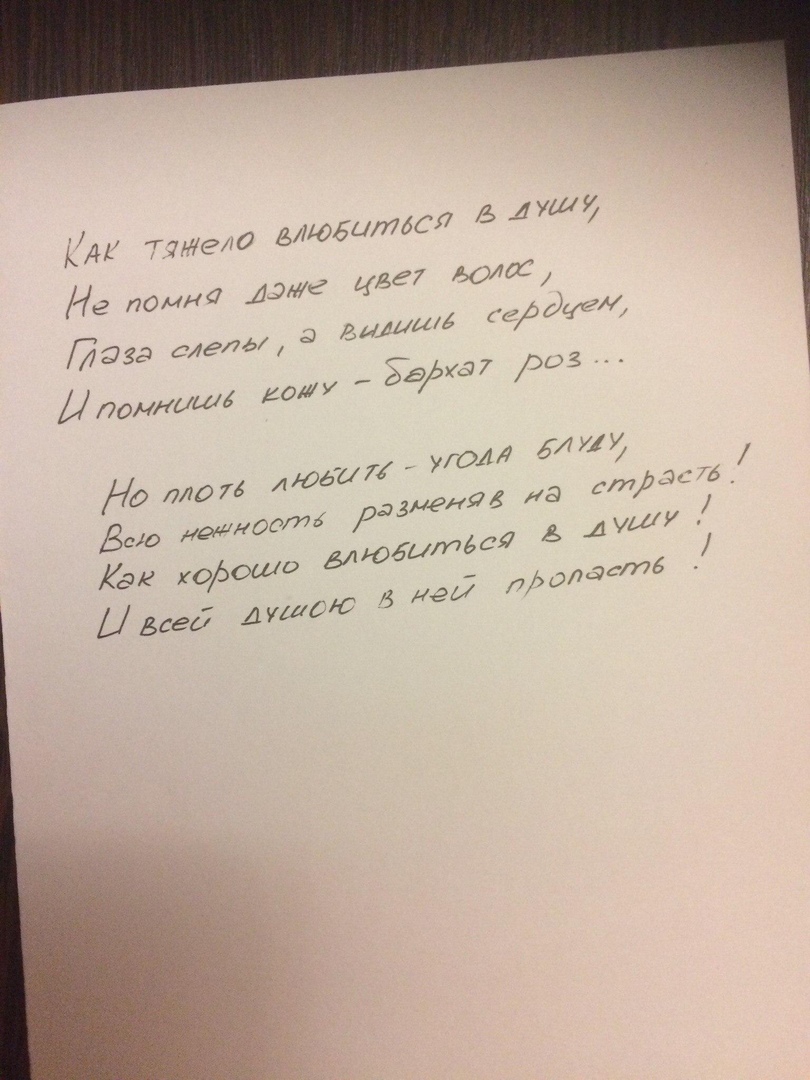 Как тяжело влюбиться в душу,
Не помня даже цвет волос,
Глаза слепы, а видишь сердцем,
И помнишь кожу - бархат роз...
Но плоть любить - угода блуду,
Всю нежность разменяв на страсть!
Как хорошо влюбиться в душу!
И всей душою в ней пропасть!